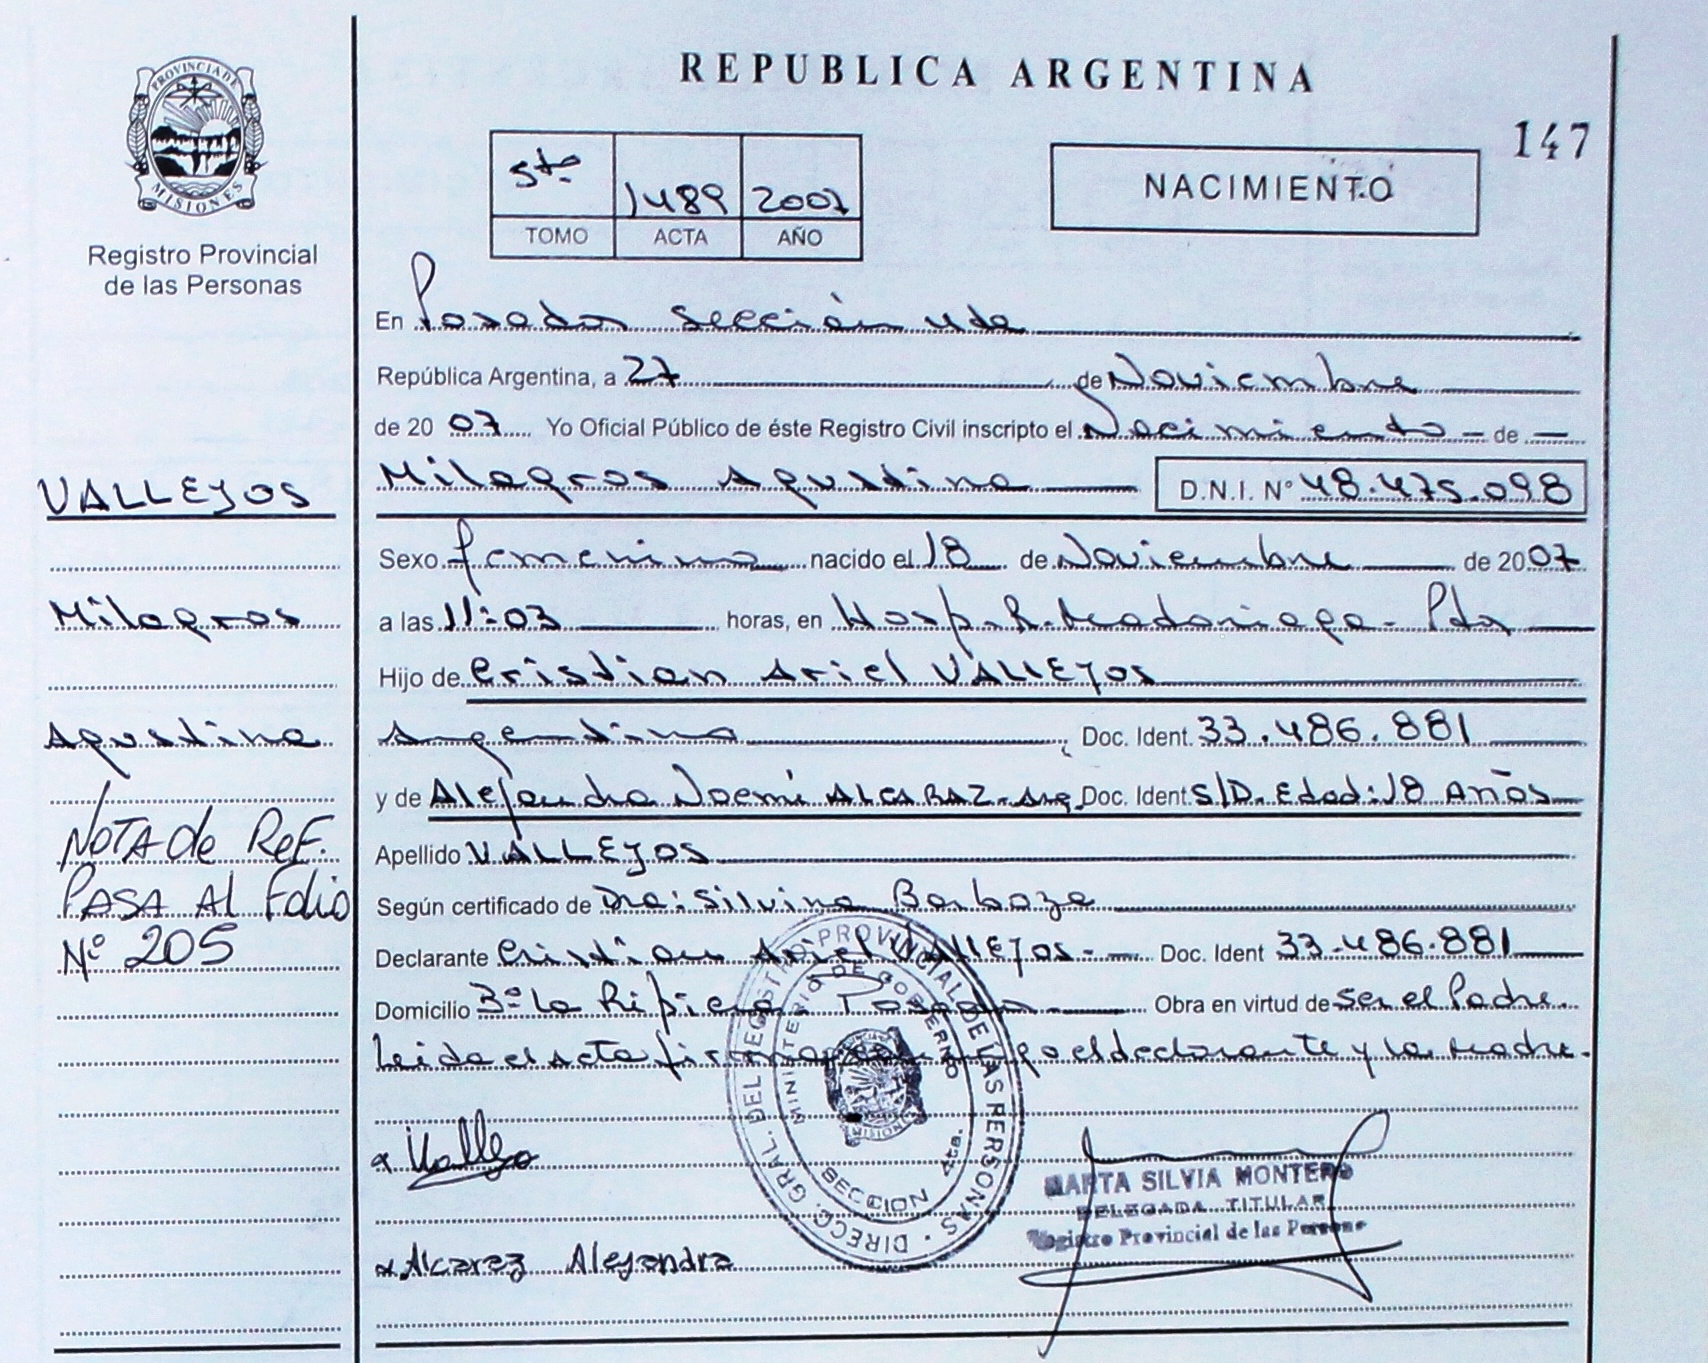 PROVINCIA DE
MISIONES
Registro Provincial
de las Personas
REPUBLICA ARGENTINA
147
5to 1489 2007
TOMO ACTA AÑO
NACIMIENTO
En Posadas Sección 4ta
República Argentina, a 27 de Noviembre
de 20 07 Yo Oficial Público de éste Registro Civil inscripto el Nacimiento - de -
Milagros Agustina D.N.I. N° 48.475.098
Sexo femenino nacido el 18 de Noviembre de 2007
a las 11:03 horas, en Hosp. R. Madariaga - Pdas
Hijo de Cristian Ariel VALLEJOS
Argentino Doc. Ident. 33.486.881
y de Alejandra Noemi ALCARAZ - Arg. Doc. Ident. S/D. Edad: 18 Años
Apellido VALLEJOS
Según certificado de Dra: Silvina Barboza
Declarante Cristian Ariel VALLEJOS - Doc. Ident 33.486.881
Domicilio 3° La Posadas Obra en virtud de ser el Padre.
Leida el acta firman el declarante y la madre.
VALLEJOS
Milagros
Agustina
NOTA de REF.
PASA Al Folio
N° 205
x Vallejo
x Alcarez Alejandra
DIRECC. GRAL. DEL REGISTRO PROVINCIAL DE LAS PERSONAS
MINISTERIO DE GOBIERNO
SECCION 4ta.
MISIONES
MARTA SILVIA MONTERO
DELEGADA TITULAR
Registro Provincial de las Personas